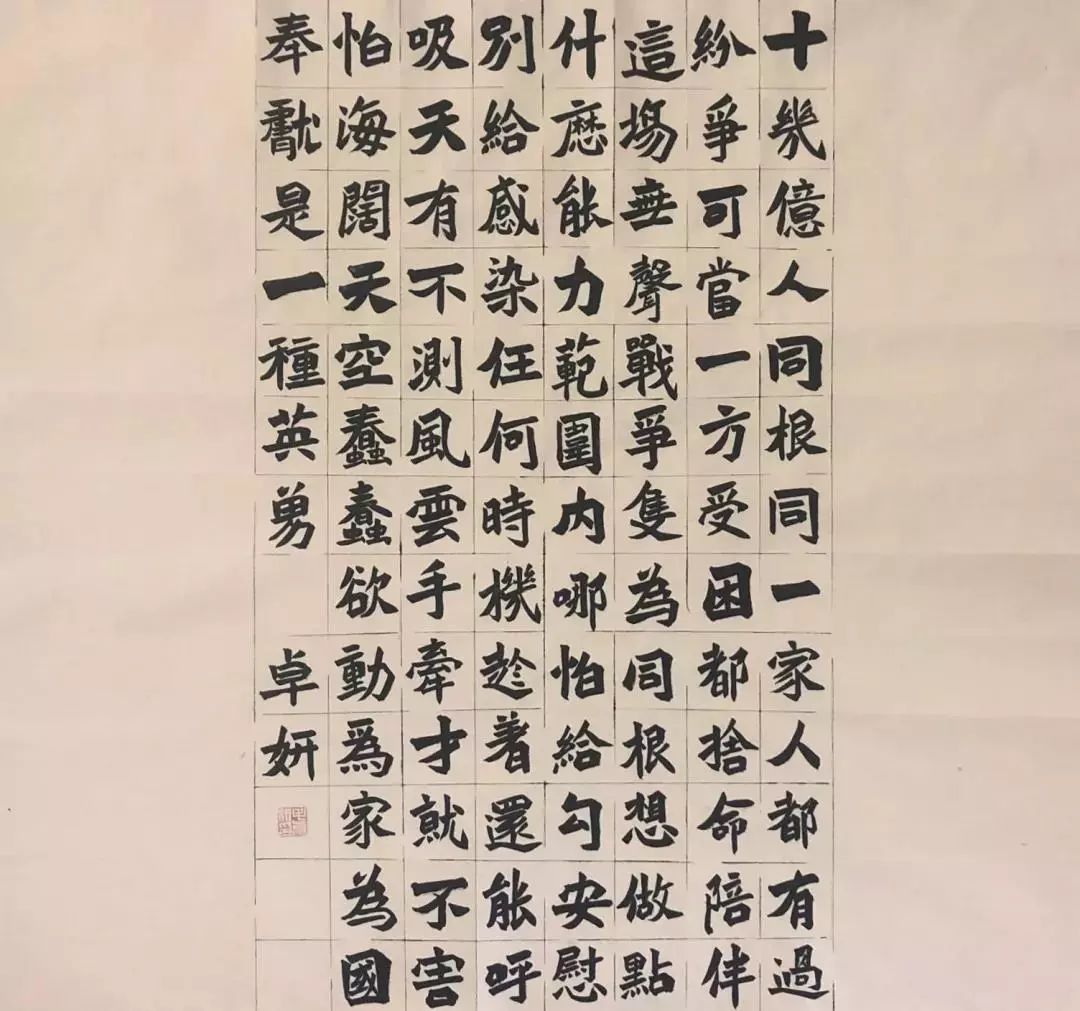 十幾億人同根同一家人都有過
紛爭可當一方受困都捨命陪伴
這場無聲戰爭隻為同根想做點
什麽能力範圍内哪怕給勾安慰
別給感染任何時機趁着還能呼
吸天有不測風雲手牽才就不害
怕海闊天空蠢蠢欲動爲家為國
奉獻是一種英勇
卓妍